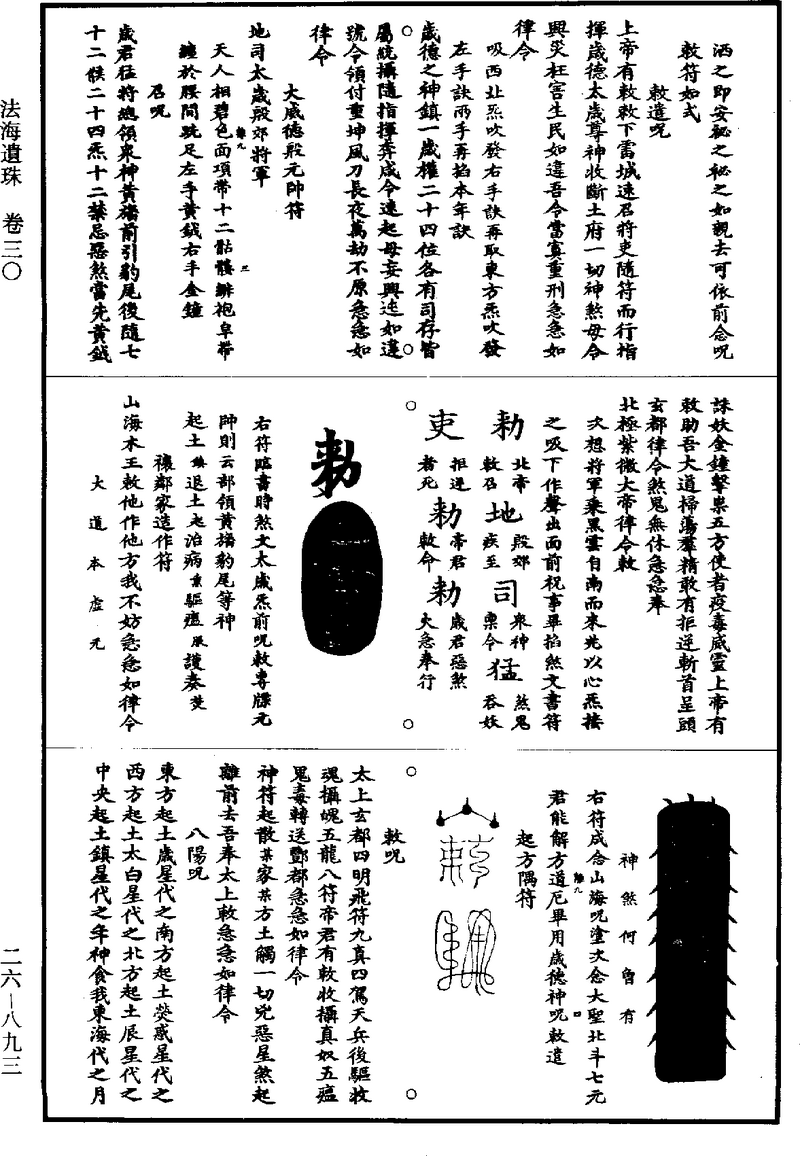 洒之即安秘之秘之如親去可依前念呪
敕符如式
敕遣呪
上帝有敕敕下雷城速召將吏隨符而行指
揮歲德太歲尊神收斷土府一切神煞毋令
興災枉害生民如違吾令當寘重刑急急如
律令
吸西北炁吹發右手訣再取東方炁吹發
左手訣兩手再掐本年訣
歲德之神鎮一歲權二十四位各有司存皆
屬統攝隨指揮奔咸令速起毋妄興迍如違
號令領付重坤風刀長夜萬劫不原急急如
律令
大威德殷元帥符
地司太歲殷郊將軍
天人相碧色面項帶十二骷髏緋袍皁帶
纏於腰間跣足左手黃鉞右手金鐘
召呪
歲君猛將總領衆神黃旛前引豹尾後隨七
十二候二十四炁十二禁忌惡煞當先黃鉞
誅妖金鐘擊祟五方使者疫毒威靈上帝有
敕助吾大道掃蕩羣精敢有拒逆斬首呈頭
玄都律令煞鬼無休急急奉
北極紫微大帝律令敕
次想將軍乘黑雲自南而來先以心炁接
之吸下作聲出面前祝事畢掐煞文書符
勅 北帝敕召 地 殷郊疾至 司 衆神稟令 猛 煞鬼吞妖
吏 拒逆者死 勅 帝君敕令 勅 歲君惡煞火急奉行
勅
右符臨書時煞文太歲炁前呪敕專牒元
帥則云部領黃旛豹尾等神
起土 退土 治病 驅瘟 護奏
禳鄰家造作符
山海本王敕他作他方我不妨急急如律令
大道本虛元
神煞何曾有
右符成念山海呪塗次念大聖北斗七元
君能解方道厄畢用歲德神呪敕遣
起方隅符
敕呪
太上玄都四明飛符九真四駕天兵後驅收
魂攝魄五龍八符帝君有敕收攝真奴五瘟
鬼毒轉送酆都急急如律令
神符起散某家某方土觸一切兇惡星煞起
離前去吾奉太上敕急急如律令
八陽呪
東方起土歲星代之南方起土熒惑星代之
西方起土太白星代之北方起土辰星代之
中央起土鎮星代之年神食我東海代之月
法海遺珠 卷三〇
二六—八九三